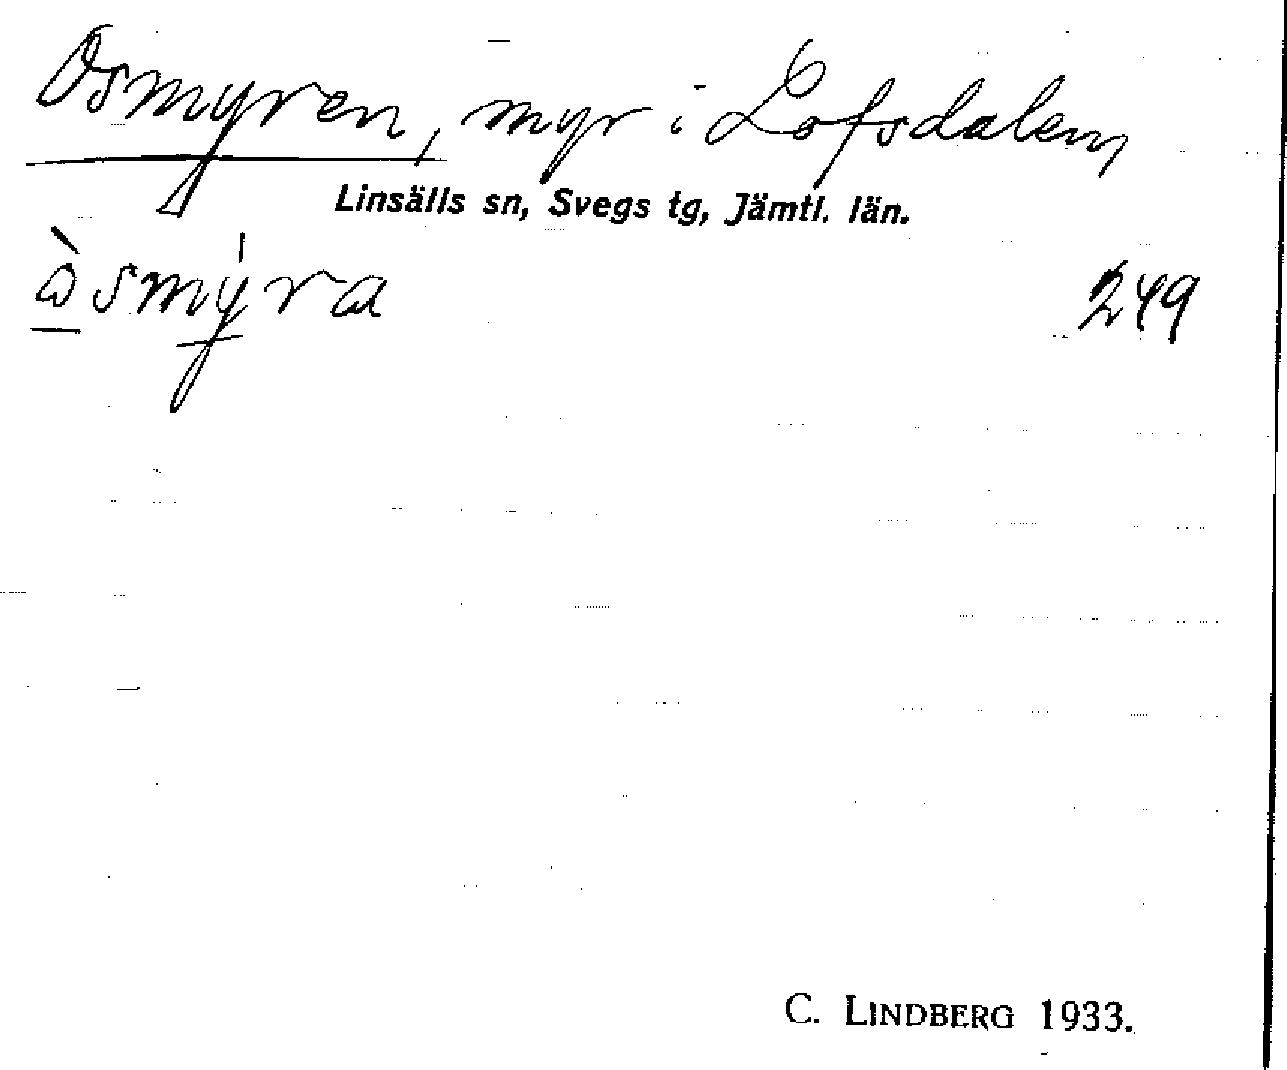 Osmyren, myr i Lofsdalen,
Linsälls sn, Svegs tg, Jämtl. län.
ὼsmýra 249
C. LINDBERG 1933.